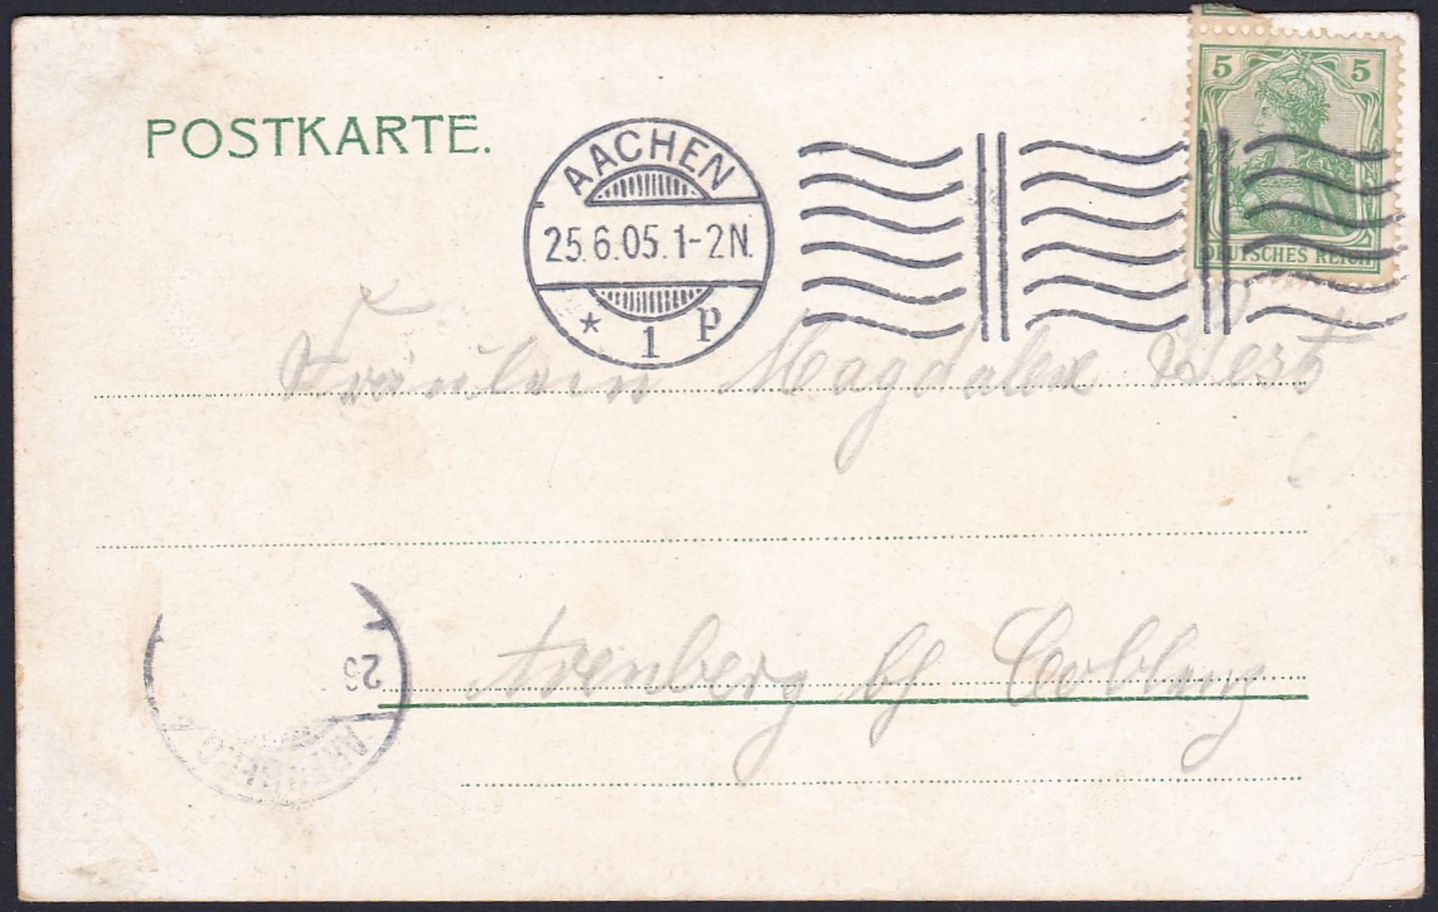 POSTKARTE.
AACHEN
25.6.05.1-2N.
* 1 p
5 5
DEUTSCHES REICH
Fräulein Magdalen West
Arenberg b/ Coblenz
26
ARENBERG